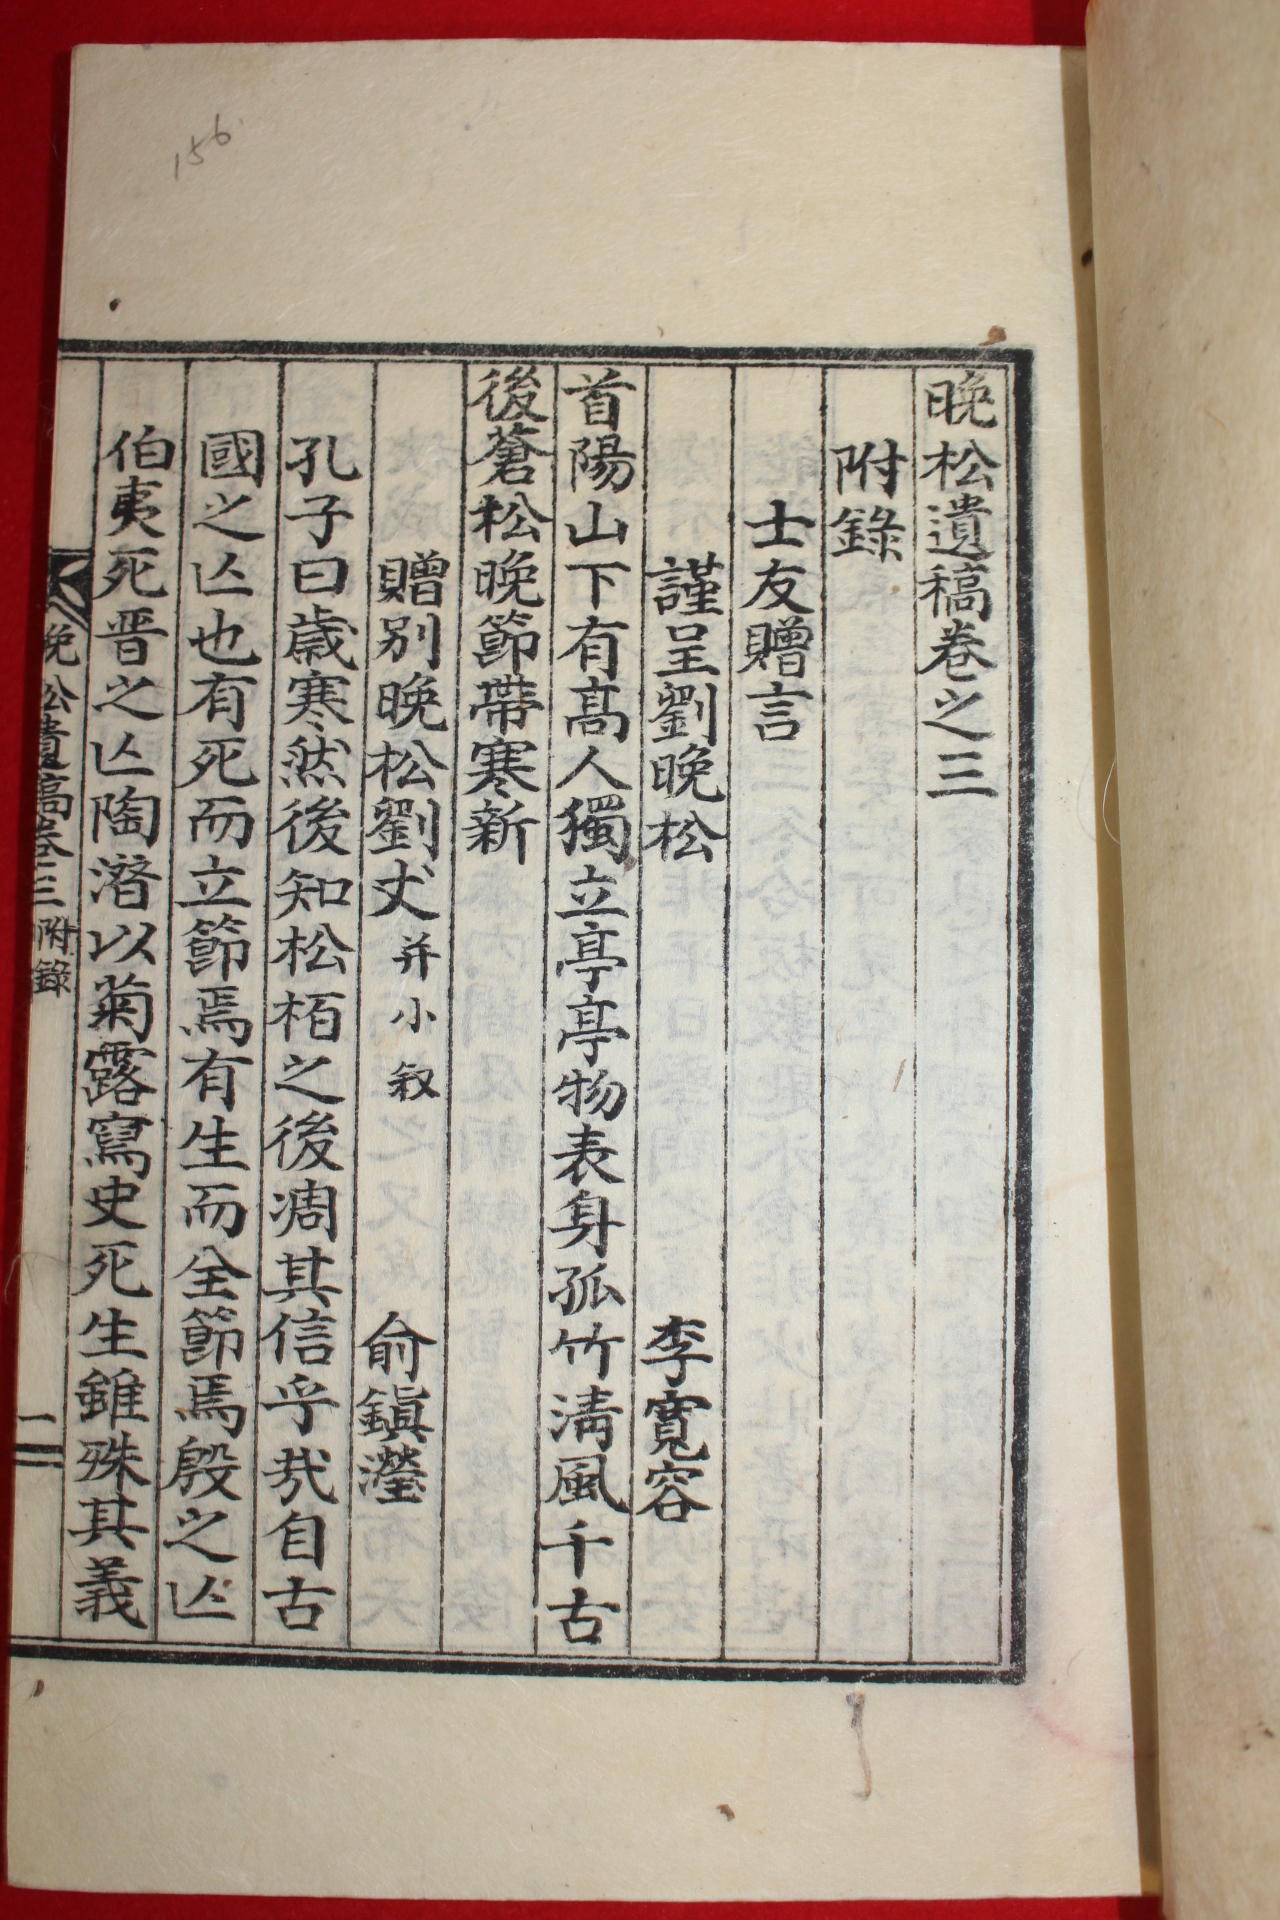 156
晩松遺稿卷之三
附錄
士友贈言
謹呈劉晩松 李寬容
首陽山下有高人獨立亭亭物表身孤竹淸風千古
後蒼松晩節帶寒新
贈別晩松劉丈并小叙 俞鎭瀅
孔子曰歲寒然後知松栢之後凋其信乎㢤自古
國之亾也有死而立節焉有生而全節焉殷之亾
伯夷死晋之亾陶潛以菊露寫史死生雖殊其義
晩松遺稿卷三 附錄 一